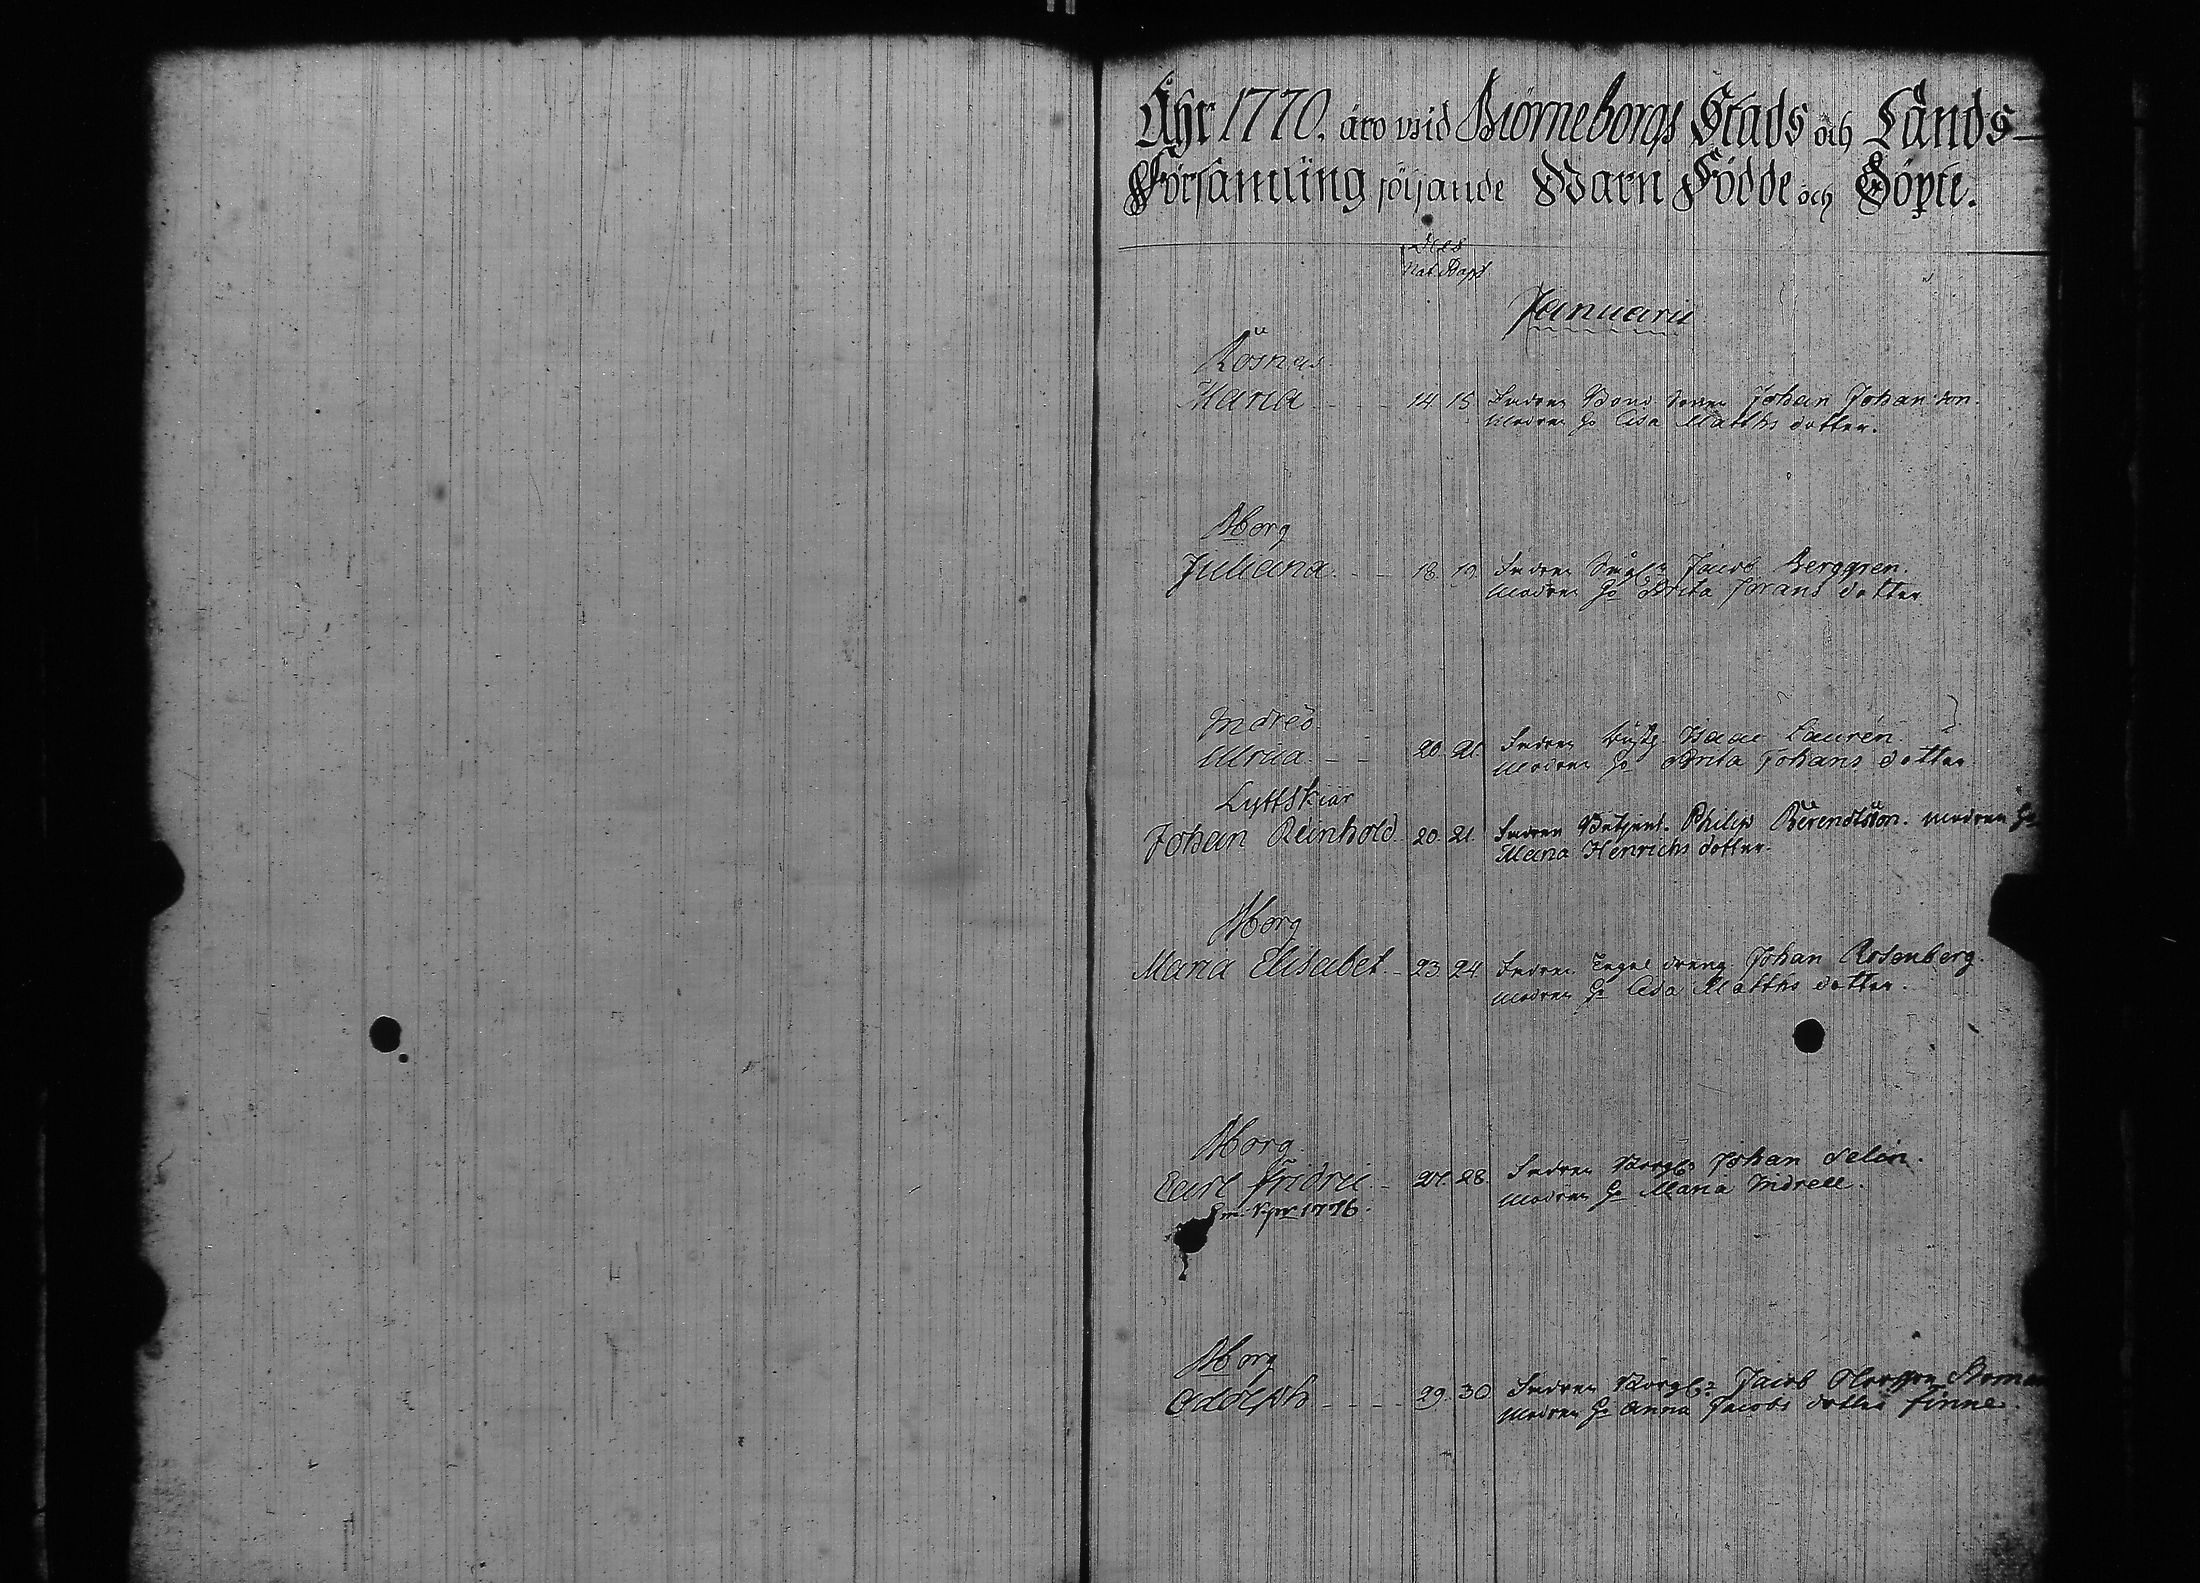 Åhr 1770. äro wid Biörneborgs Stads och Lands-
Försambling följande Barn Födde och Döpte.
Dies
Nat. Bapt
Januarii
Rosnäs
Maria - - - 14. 15. Fadren Bond Sonen Johan Johan son.
Modren H. Lisa Matths dotter.
Bborg
Juliana. - - 18. 19. Fadren Jacob Berggren.
Modren H. Brita Jörans dotter
Inderö
Ulrica. - - 20. 21. Fadren Isaac Laurén.
Modren H. Brita Johans dotter.
Lyttskiär
Johan Reinhold. 20. 21. Fadren Betjent. Philip Berendtson. modren H.
Maria Henrichs dotter.
Bborg
Maria Elisabet. - 23. 24. Fadren dräng Johan Rosenberg.
Modren H. Lisa Matths dotter.
Bborg
Carl Fridric - 27. 28. Fadren Borg. Johan Selin.
Modren H. Maria Indrell.
1776.
Bborg
Adolph - - - - 29. 30. Fadren Borg. Jacob
Modren H. Anna Jacobs dotter Finne.